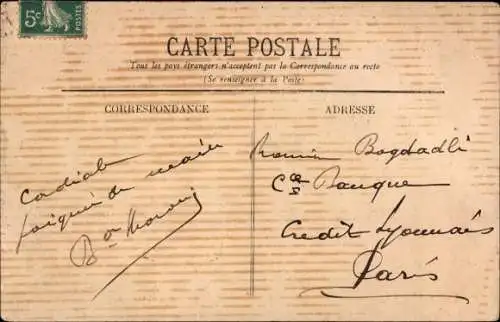 5c
CARTE POSTALE
Tous les pays étrangers n'acceptent pas la Correspondance au recto
(Se renseigner à la Poste)
CORRESPONDANCE
ADRESSE
Cordiale
poignée de main
Bagdadli
Banque
Credit Lyonnais
Paris